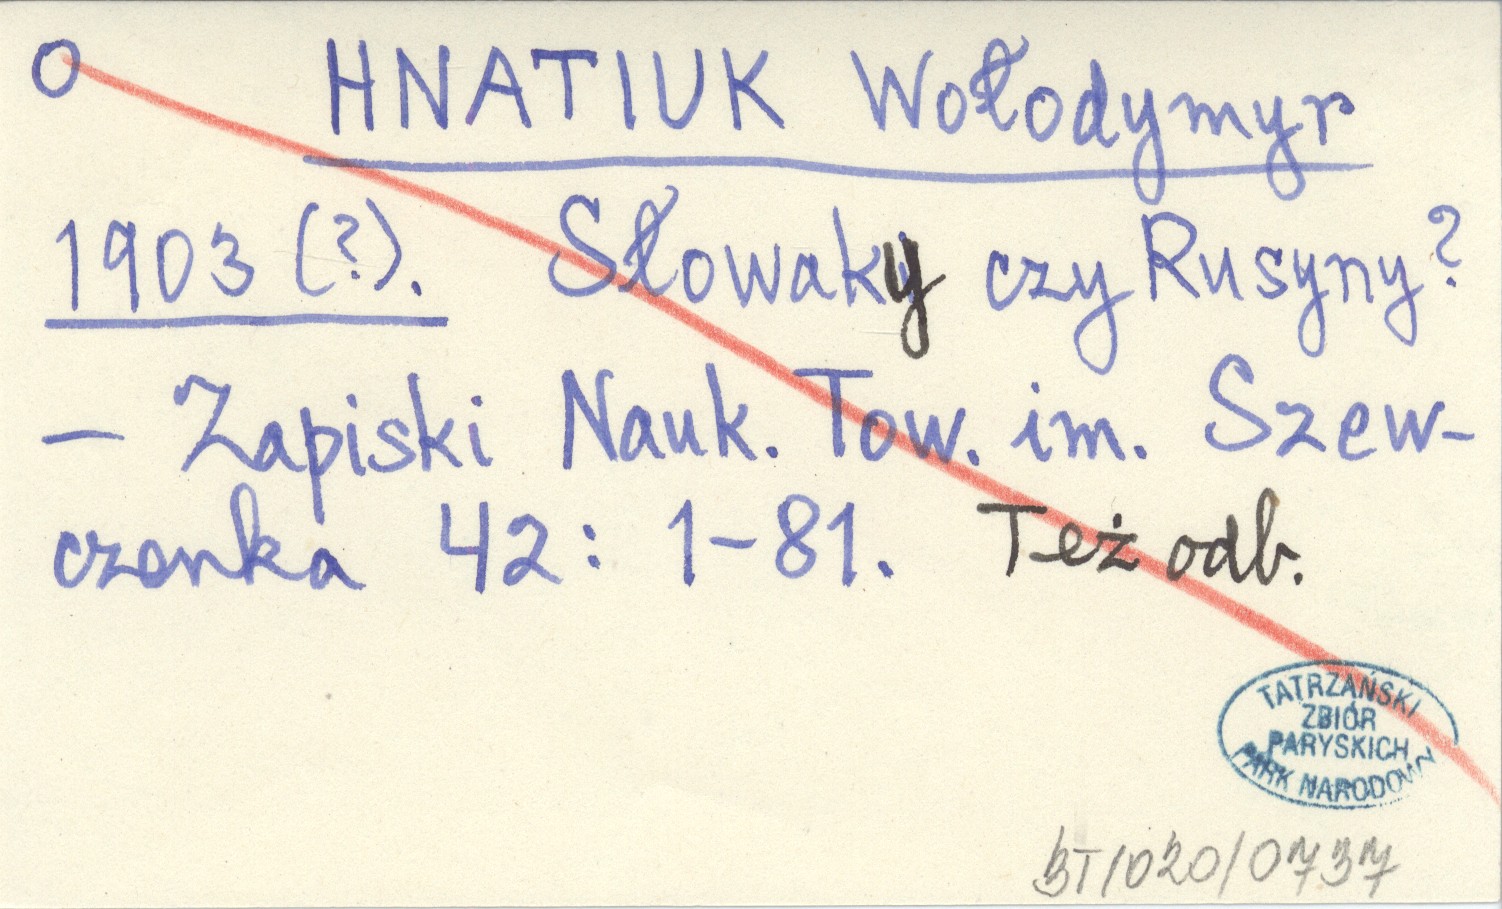 O HNATIUK Wołodymyr
1903 (?). Słowaky czy Rusyny?
– Zapiski Nauk. Tow. im. Szew-
czenka 42: 1–81. Też odb.
TATRZAŃSKI
ZBIÓR
PARYSKICH
PARK NARODOWY
BT/020/0737